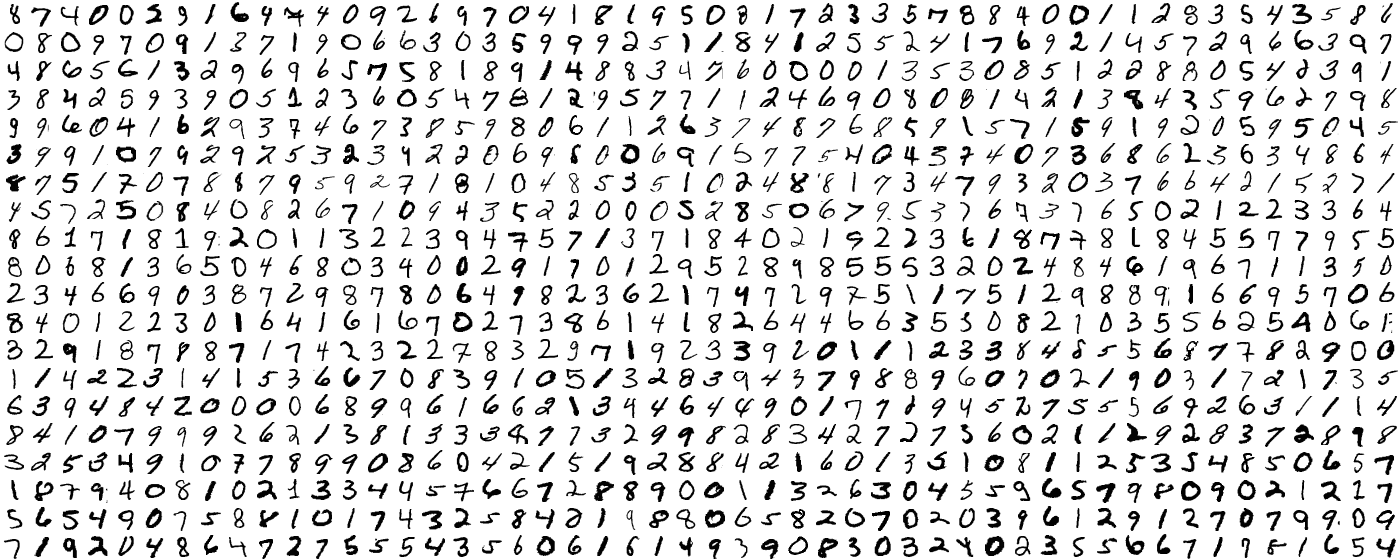 8 7 4 0 0 5 9 1 6 4 7 4 4 0 9 2 6 9 7 0 4 1 8 1 9 5 0 8 1 7 2 3 3 5 7 8 8 4 0 0 1 1 2 8 3 5 4 3 5 8 6
0 8 0 9 7 0 9 1 3 7 1 9 0 6 6 3 0 3 5 9 9 9 2 5 1 1 8 4 1 2 5 5 2 4 1 7 6 9 2 1 4 5 7 2 9 6 6 3 9 7
4 8 6 5 6 1 3 2 9 6 9 6 5 7 5 8 1 8 9 1 4 8 8 3 4 7 6 0 0 0 0 1 3 5 3 0 8 5 1 2 2 8 8 0 5 4 2 3 9 1
3 8 4 2 5 9 3 9 0 5 1 2 3 6 0 5 4 7 8 1 2 9 5 7 7 1 1 2 4 6 9 0 8 0 8 1 4 2 1 3 8 4 3 5 9 6 2 7 9 8
9 9 6 0 4 1 6 2 9 3 7 4 6 7 3 8 5 9 8 0 6 1 1 2 6 3 7 4 8 7 6 8 5 9 1 5 7 1 5 9 1 9 2 0 5 9 5 0 4 5
3 9 9 1 0 7 9 2 9 2 5 3 2 3 9 2 2 0 6 9 8 0 0 6 9 1 5 7 7 5 4 0 4 3 7 4 0 7 3 6 8 6 2 3 6 3 4 8 6 4
8 7 5 1 7 0 7 8 8 7 9 5 9 2 7 1 8 1 0 4 8 5 3 5 1 0 2 4 8 8 1 7 3 4 7 9 3 2 0 3 7 6 6 4 2 1 5 2 7 1
4 5 7 2 5 0 8 4 0 8 2 6 7 1 0 9 4 3 5 2 2 0 0 0 5 2 8 5 0 6 7 9 5 3 7 6 7 3 7 6 5 0 2 1 2 2 3 3 6 4
8 6 1 7 1 8 1 9 2 0 1 1 3 2 2 3 9 4 7 5 7 1 3 7 1 8 4 0 2 1 5 2 2 3 6 1 8 7 7 8 1 8 4 5 5 7 7 9 5 5
8 0 6 8 1 3 6 5 0 4 6 8 0 3 4 0 0 2 9 1 7 0 1 2 9 5 2 8 9 8 5 5 5 3 2 0 2 4 8 4 6 1 9 6 7 1 1 3 5 0
2 3 4 6 6 9 0 3 8 7 2 9 8 7 8 0 6 4 9 8 2 3 6 2 1 7 4 7 2 9 7 5 1 1 7 5 1 2 9 8 8 9 1 6 6 9 5 7 0 6
8 4 0 1 2 2 3 0 1 6 4 1 6 1 6 7 0 2 7 3 8 6 1 4 1 8 2 6 4 4 6 6 3 5 3 0 8 2 7 0 3 5 5 5 6 2 5 4 0 6 1
3 2 9 1 8 7 9 8 8 7 1 7 4 2 3 2 2 7 8 3 2 9 7 1 9 2 3 3 9 2 0 1 1 1 2 3 3 8 4 8 5 5 6 8 7 7 8 2 9 0 0
1 1 4 2 2 3 1 4 1 5 3 6 6 7 0 8 3 9 1 0 5 1 3 2 8 3 9 4 3 7 9 8 8 9 6 0 7 0 2 1 9 0 3 1 7 2 1 7 3 5
6 3 9 4 8 4 2 0 0 0 0 6 8 9 9 6 1 6 6 2 1 3 4 4 6 4 4 9 0 1 7 7 8 9 4 5 2 7 5 5 5 6 9 2 6 3 1 1 1 4
8 4 1 0 7 9 9 9 2 6 2 1 3 8 1 3 3 3 8 7 7 3 2 9 9 8 2 8 3 4 2 7 2 7 3 6 0 2 1 1 2 9 2 8 3 7 2 8 9 8
3 2 5 3 4 9 1 0 7 7 8 9 9 0 8 6 0 4 2 1 5 1 9 2 8 8 4 2 1 6 0 1 3 5 1 0 8 1 1 2 5 3 5 4 8 5 0 6 5 7
1 8 7 9 4 0 8 1 0 2 1 3 3 4 4 5 7 6 6 7 2 8 8 9 0 0 1 1 3 2 6 3 0 4 5 5 9 6 5 7 9 8 0 9 0 2 1 2 1 7
5 6 5 4 9 0 7 5 8 8 1 0 1 7 4 3 2 5 8 4 2 1 9 8 8 0 6 5 8 2 0 7 0 2 0 3 9 6 1 2 9 1 2 7 0 7 9 9 0 9
7 1 9 2 0 4 8 6 4 7 2 7 5 5 5 4 3 5 6 0 6 1 6 1 4 9 3 9 0 8 3 0 3 2 4 0 2 3 5 5 6 6 7 1 7 5 1 6 5 4